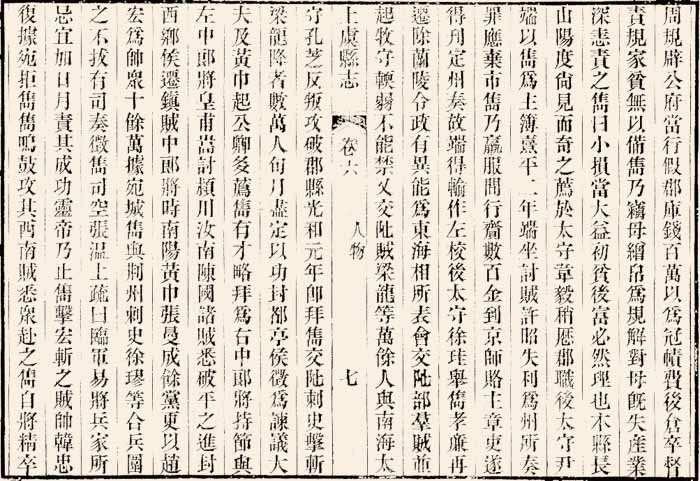 周規辟公府當行假郡庫錢百萬以爲冠幘費後倉卒督
責規家貧無以備雋乃竊母繒帛爲規解對母旣失產業
深恚責之雋曰小損當大益初貧後富必然理也本縣長
山陽度尙見而奇之薦於太守韋毅稍歷郡職後太守尹
端以雋爲主簿熹平二年端坐討賊許昭失利爲州所奏
罪應棄市雋乃羸服閒行齎數百金到京師賂主章吏遂
得刋定州奏故端得輸作左校後太守徐珪舉雋孝廉再
遷除蘭陵令政有異能爲東海相所表會交阯部羣賊並
起牧守輭弱不能禁又交阯賊梁龍等萬餘人與南海太
上虞縣志
卷六
人物
七
守孔芝反叛攻破郡縣光和元年卽拜雋交阯刺史擊斬
梁龍降者數萬人旬月盡定以功封都亭侯徵爲諫議大
夫及黃巾起公卿多薦雋有才略拜爲右中郞將持節與
左中郞將皇甫嵩討潁川汝南陳國諸賊悉破平之進封
西鄉侯遷鎭賊中郞將時南陽黃巾張曼成餘黨更以趙
宏爲帥衆十餘萬據宛城雋與荆州刺史徐璆等合兵圍
之不拔有司奏徵雋司空張溫上疏曰臨軍易將兵家所
忌宜加日月責其成功靈帝乃止雋擊宏斬之賊帥韓忠
復據宛拒雋雋鳴鼓攻其西南賊悉衆赴之雋自將精卒